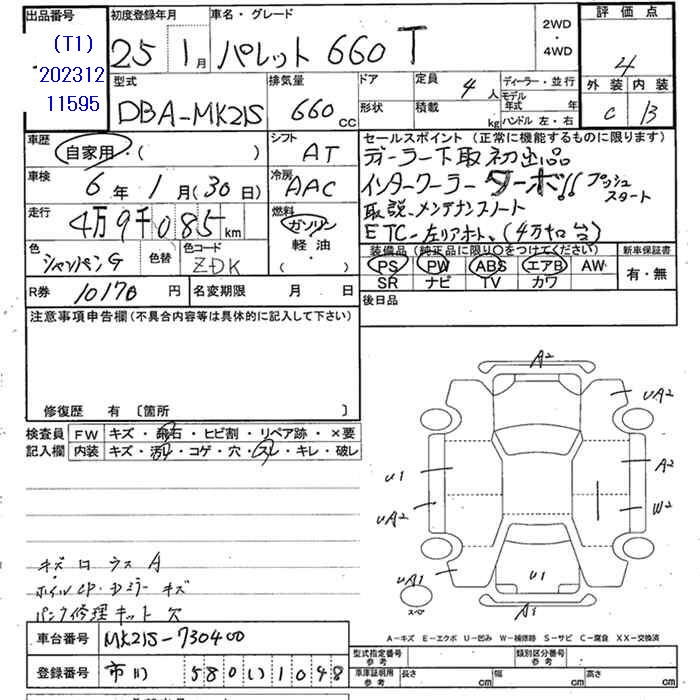 出品番号
(T1)
202312
11595
初度登録年月
25 年 1 月
車名・グレード
パレット 660 T
2WD
・
4WD
評価点
4
外装 内装
C B
型式
DBA-MK21S
排気量
660 CC
ドア
形状
定員 4 人
積載 kg
ディーラー・並行
モデル
年式 年
ハンドル 左・右
車歴
自家用・( )
シフト
AT
車検
6 年 1 月 (30 日)
冷房
AAC
走行
4万9千085 km
燃料
ガソリン
軽油・
( )
色
シャンパンG
色替
色コード
ZDK
R券 10170 円
名変期限 月 日
セールスポイント(正常に機能するものに限ります)
ディーラー下取初出品
インタークーラーターボ!! プッシュ
スタート
取説、メンテナンスノート
ETC 左リアオート、(4万キロ台)
装備品(純正品に限り○をつけてください)
新車保証書
PS PW ABS エアB AW
SR ナビ TV カワ
有・無
後日品
注意事項申告欄(不具合内容等は具体的に記入して下さい)
修復歴 有 〔箇所 〕
検査員 FW キズ・飛石・ヒビ割・リペア跡・×要
記入欄 内装 キズ・汚れ・コゲ・穴・スレ・キレ・破レ
キズ口 ウス A
ホイルCP・Dミラー キズ
パンク修理キット 欠
A2
UA2
U1
A2
UA2
W2
UA1
U1
A1
スペア
A-キズ E-エクボ U-凹み W-補修跡 S-サビ C-腐食 XX-交換済
車台番号 MK21S-730400
登録番号 市川 580 い 1048
型式指定番号
参考
類別区分番号
参考
車庫証明用
参考
長さ cm 幅 cm 高さ cm